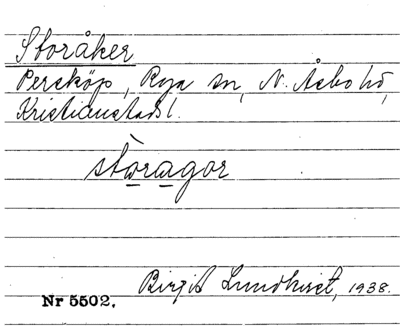 Storåker
Persköp, Rya sn, N. Åsbo hd,
Kristianstads l.
stòragor
Birgit Lundkvist, 1938.
Nr 5502.